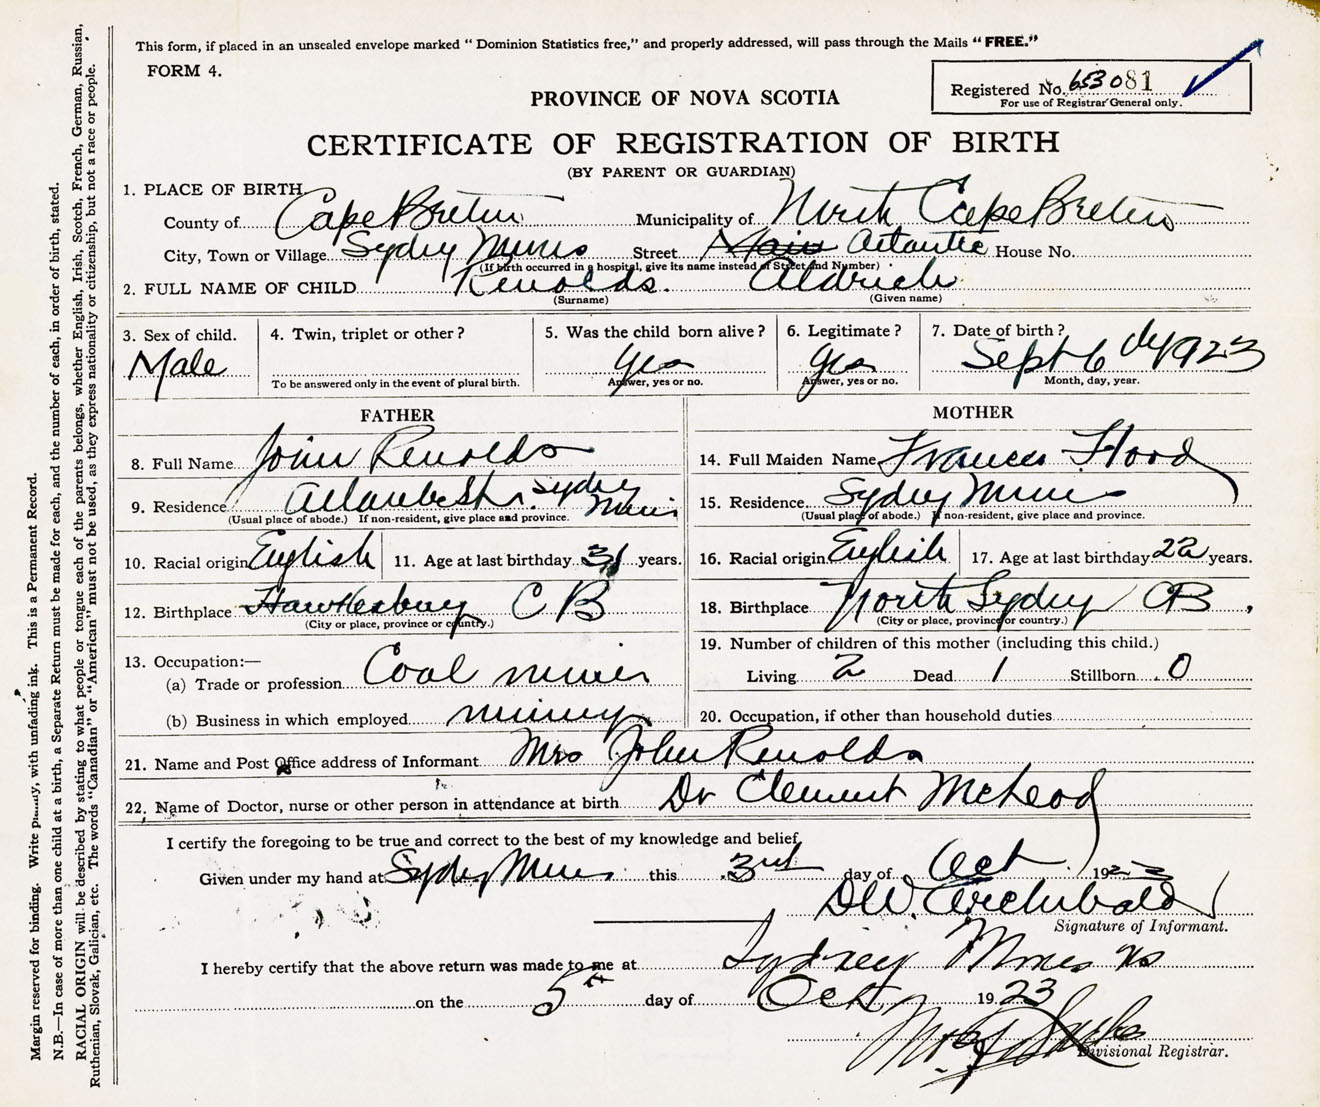 This form, if placed in an unsealed envelope marked "Dominion Statistics free," and properly addressed, will pass through the Mails "FREE."
FORM 4.
Registered No. 653081
For use of Registrar General only.
PROVINCE OF NOVA SCOTIA
CERTIFICATE OF REGISTRATION OF BIRTH
(BY PARENT OR GUARDIAN)
1. PLACE OF BIRTH
County of Cape Breton Municipality of North Cape Breton
City, Town or Village Sydney Mines Street Main Atlantic House No.
(If birth occurred in a hospital, give its name instead of Street and Number)
2. FULL NAME OF CHILD Renolds. Aldrich
(Surname) (Given name)
3. Sex of child. 4. Twin, triplet or other? 5. Was the child born alive? 6. Legitimate? 7. Date of birth?
Male yes yes Sept 6 1923
To be answered only in the event of plural birth. Answer, yes or no. Answer, yes or no. Month, day, year.
FATHER MOTHER
8. Full Name John Renolds 14. Full Maiden Name Frances Hood
9. Residence Atlantic St. Sydney Mines 15. Residence Sydney Mines
(Usual place of abode.) If non-resident, give place and province. (Usual place of abode.) If non-resident, give place and province.
10. Racial origin English 11. Age at last birthday 31 years. 16. Racial origin English 17. Age at last birthday 22 years.
12. Birthplace Hawkesbury C B 18. Birthplace North Sydney CB
(City or place, province or country.) (City or place, province or country.)
13. Occupation:— 19. Number of children of this mother (including this child.)
(a) Trade or profession Coal miner Living 2 Dead 1 Stillborn 0
(b) Business in which employed mining 20. Occupation, if other than household duties
21. Name and Post Office address of Informant Mrs John Renolds
22. Name of Doctor, nurse or other person in attendance at birth Dr Clement McLeod
I certify the foregoing to be true and correct to the best of my knowledge and belief,
Given under my hand at Sydney Mines this 3rd day of Oct 1923
D.W. Archibald
Signature of Informant.
I hereby certify that the above return was made to me at Sydney Mines NS
on the 5th day of Oct 1923
Divisional Registrar.
Margin reserved for binding. Write with unfading ink. This is a Permanent Record.
N.B.—In case of more than one child at a birth, a Separate Return must be made for each, and the number of each, in order of birth, stated.
RACIAL ORIGIN will be described by stating to what people or tongue each of the parents belongs, whether English, Irish, Scotch, French, German, Russian,
Ruthenian, Slovak, Galician, etc. The words "Canadian" or "American" must not be used, as they express nationality or citizenship, but not a race or people.